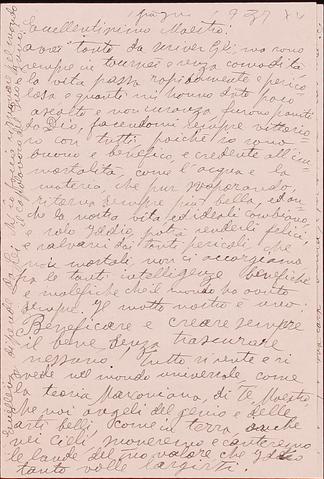 1939 XV
Eccellentissimo Maestro:
avrei tante da scriverGli, ma sono
sempre in tournée e senza comodità
la vita passa rapidamente e perico
losa e quanti mi hanno dato poco
ascolto e noncuranza, furono puniti
da Dio, facendomi sempre vittorio
so con tutti, poiché io sono
buono e benefico, e credente all'im
mortalità, come l'acqua e la
materia, che pur svaporando,
ritorna sempre più bella, ed an
che la nostra vita ed ideali cambiano
e solo Iddio, potrà renderli felici
e salvarci dai tanti pericoli che
noi mortali non ci accorgiamo
fra le tanti intelligenze benefiche
e malefiche che il mondo ha avuto
sempre. Il motto nostro è uno:
Beneficare e creare sempre
il bene senza trascurare
nessuno. Tutto si sente e si
vede nel mondo universale come
la teoria Marconiana, di Te, Maestro
che noi angeli del genio e delle
arti belli, come in terra, anche
nei cieli, suoneremo e canteremo
le laude del tuo valore che Iddio
tanto volle largirti.